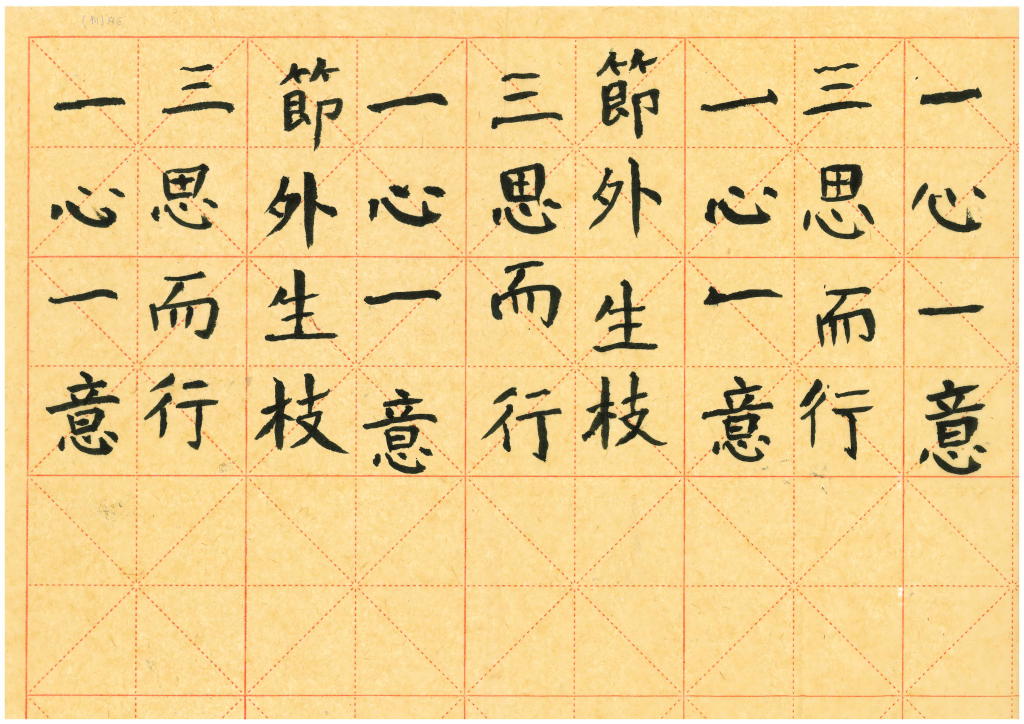 一心一意
三思而行
一心一意
節外生枝
三思而行
一心一意
節外生枝
三思而行
一心一意